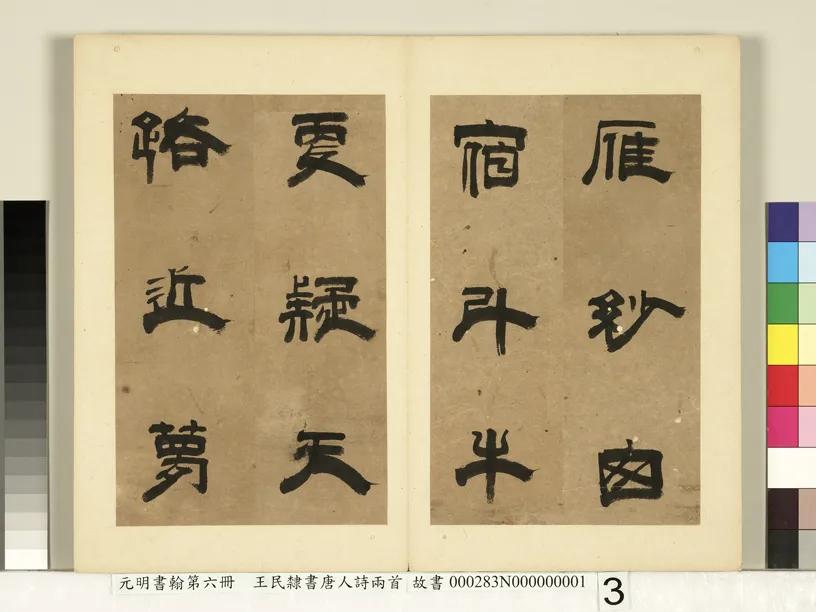 雁紗囪
宿斗牛
更疑天
路近夢
元明書翰第六冊 王民隸書唐人詩兩首 故書 000283N000000001
3